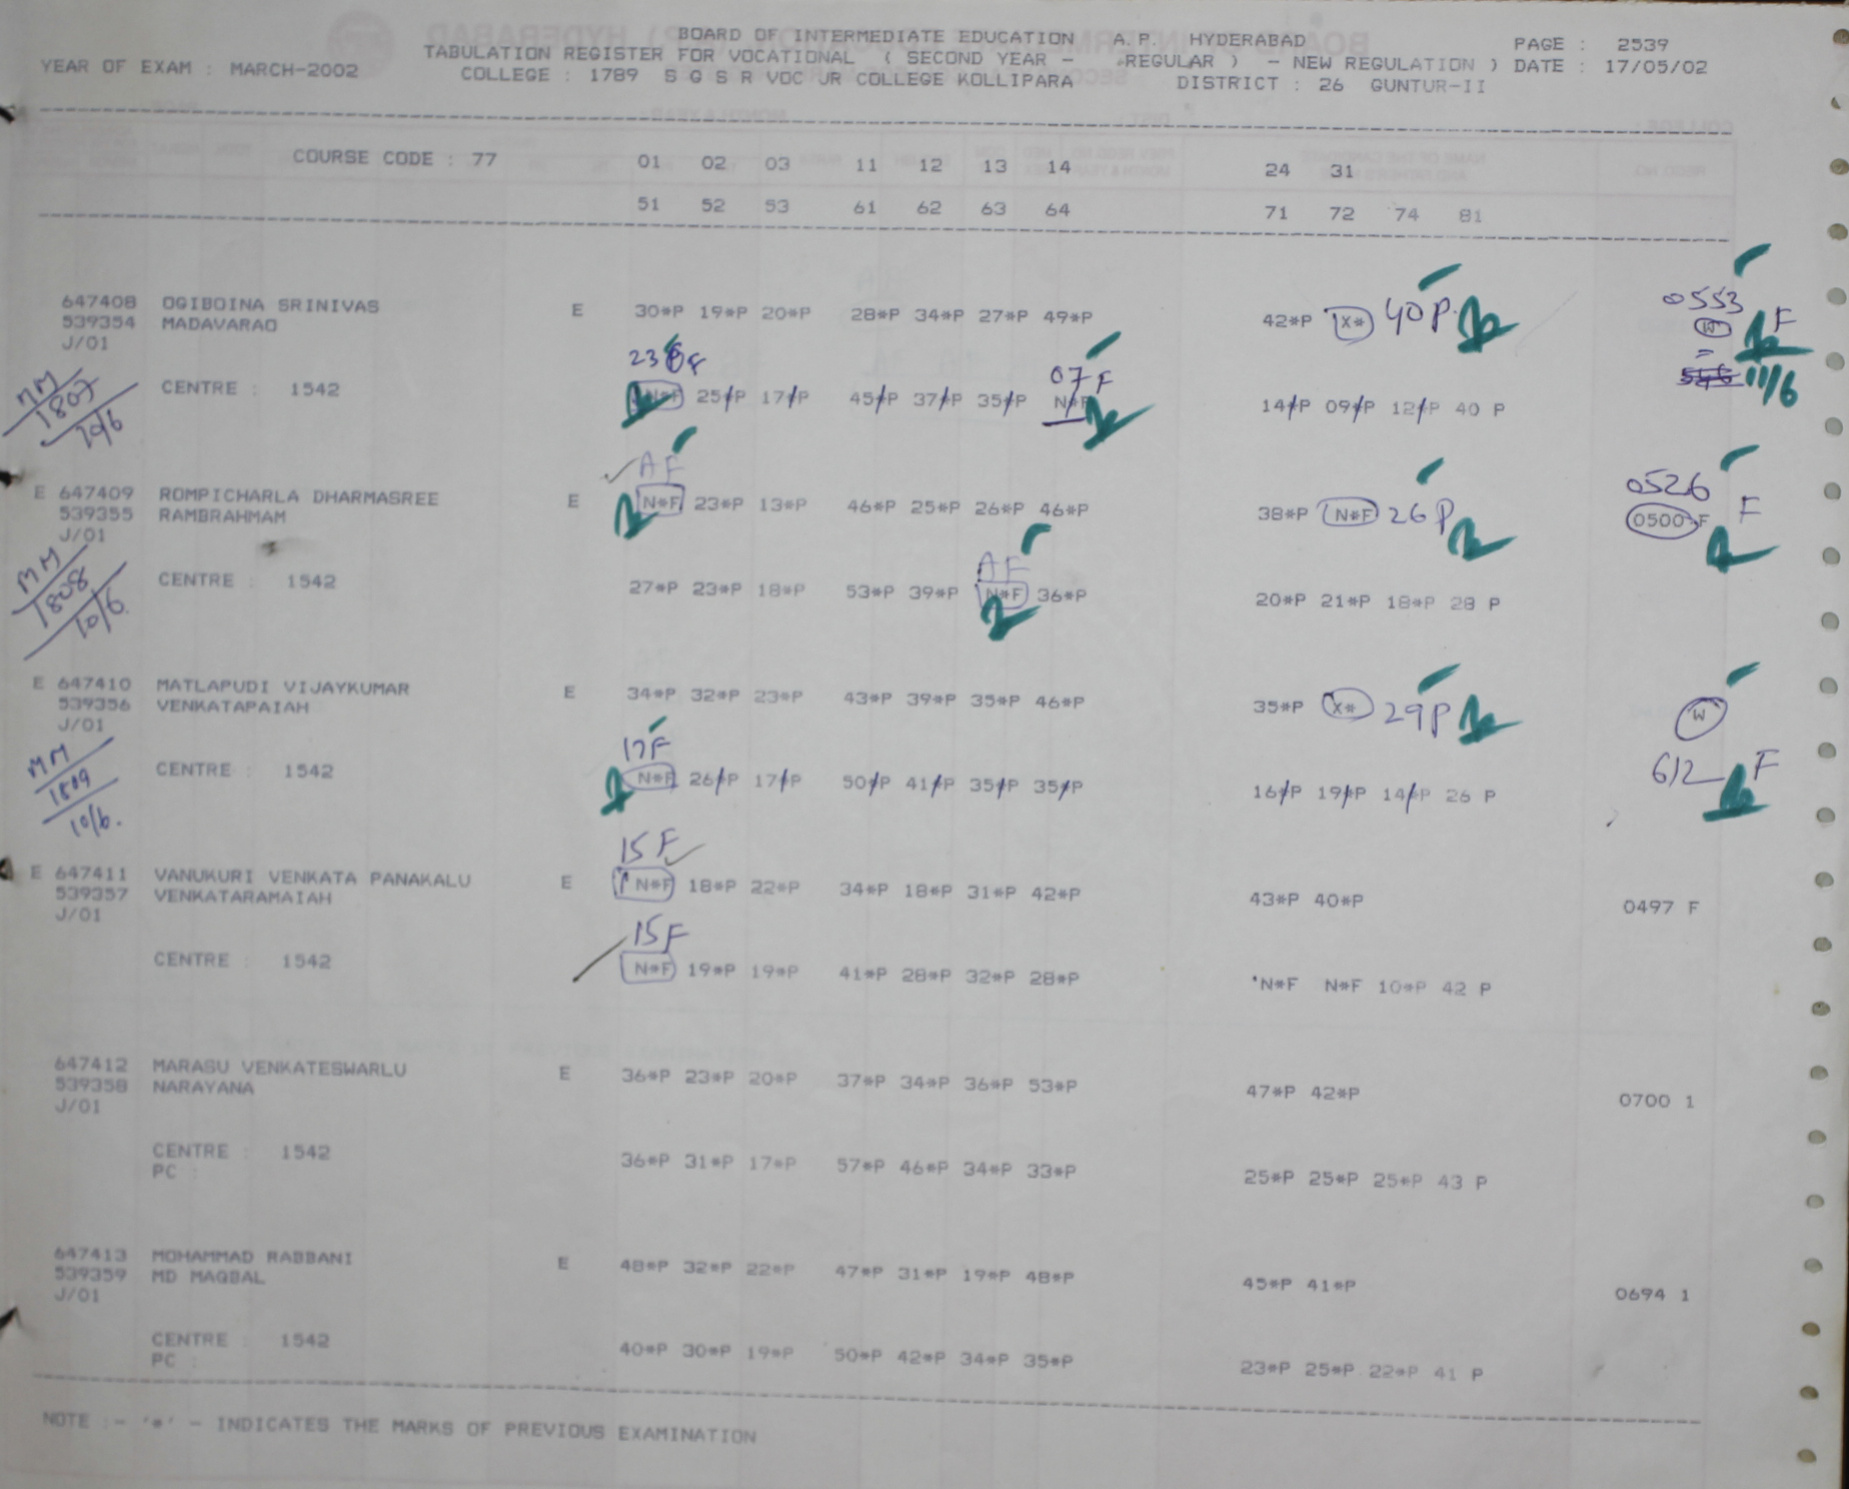 BOARD OF INTERMEDIATE EDUCATION A.P. HYDERABAD PAGE : 2539
TABULATION REGISTER FOR VOCATIONAL ( SECOND YEAR - REGULAR ) - NEW REGULATION ) DATE : 17/05/02
YEAR OF EXAM : MARCH-2002 COLLEGE : 1789 S G S R VOC JR COLLEGE KOLLIPARA DISTRICT : 26 GUNTUR-II
COURSE CODE : 77 01 02 03 11 12 13 14 24 31
51 52 53 61 62 63 64 71 72 74 81
647408 OGIBOINA SRINIVAS E 30*P 19*P 20*P 28*P 34*P 27*P 49*P 42*P X* 40P 0553
539354 MADAVARAO W F
J/01
23 F 07 F
MM CENTRE : 1542 N*F 25*P 17*P 45*P 37*P 35*P N*F 14*P 09*P 12*P 40 P 11/6
1807
10/6
AF 0526
E 647409 ROMPICHARLA DHARMASREE E N*F 23*P 13*P 46*P 25*P 26*P 46*P 38*P N*F 26P 0500 F F
539355 RAMBRAHMAM
J/01
AF
MM CENTRE : 1542 27*P 23*P 18*P 53*P 39*P N*F 36*P 20*P 21*P 18*P 28 P
1808
10/6
E 647410 MATLAPUDI VIJAYKUMAR E 34*P 32*P 23*P 43*P 39*P 35*P 46*P 35*P X* 29P W
539356 VENKATAPAIAH
J/01
17F
MM CENTRE : 1542 N*F 26*P 17*P 50*P 41*P 35*P 35*P 16*P 19*P 14*P 26 P 612 F
1809
10/6.
15F
E 647411 VANUKURI VENKATA PANAKALU E N*F 18*P 22*P 34*P 18*P 31*P 42*P 43*P 40*P 0497 F
539357 VENKATARAMAIAH
J/01
15F
CENTRE : 1542 N*F 19*P 19*P 41*P 28*P 32*P 28*P N*F N*F 10*P 42 P
647412 MARASU VENKATESWARLU E 36*P 23*P 20*P 37*P 34*P 36*P 53*P 47*P 42*P 0700 1
539358 NARAYANA
J/01
CENTRE : 1542 36*P 31*P 17*P 57*P 46*P 34*P 33*P 25*P 25*P 25*P 43 P
PC :
647413 MOHAMMAD RABBANI E 48*P 32*P 22*P 47*P 31*P 19*P 48*P 45*P 41*P 0694 1
539359 MD MAQBAL
J/01
CENTRE : 1542 40*P 30*P 19*P 50*P 42*P 34*P 35*P 23*P 25*P 22*P 41 P
PC :
NOTE :- '*' - INDICATES THE MARKS OF PREVIOUS EXAMINATION